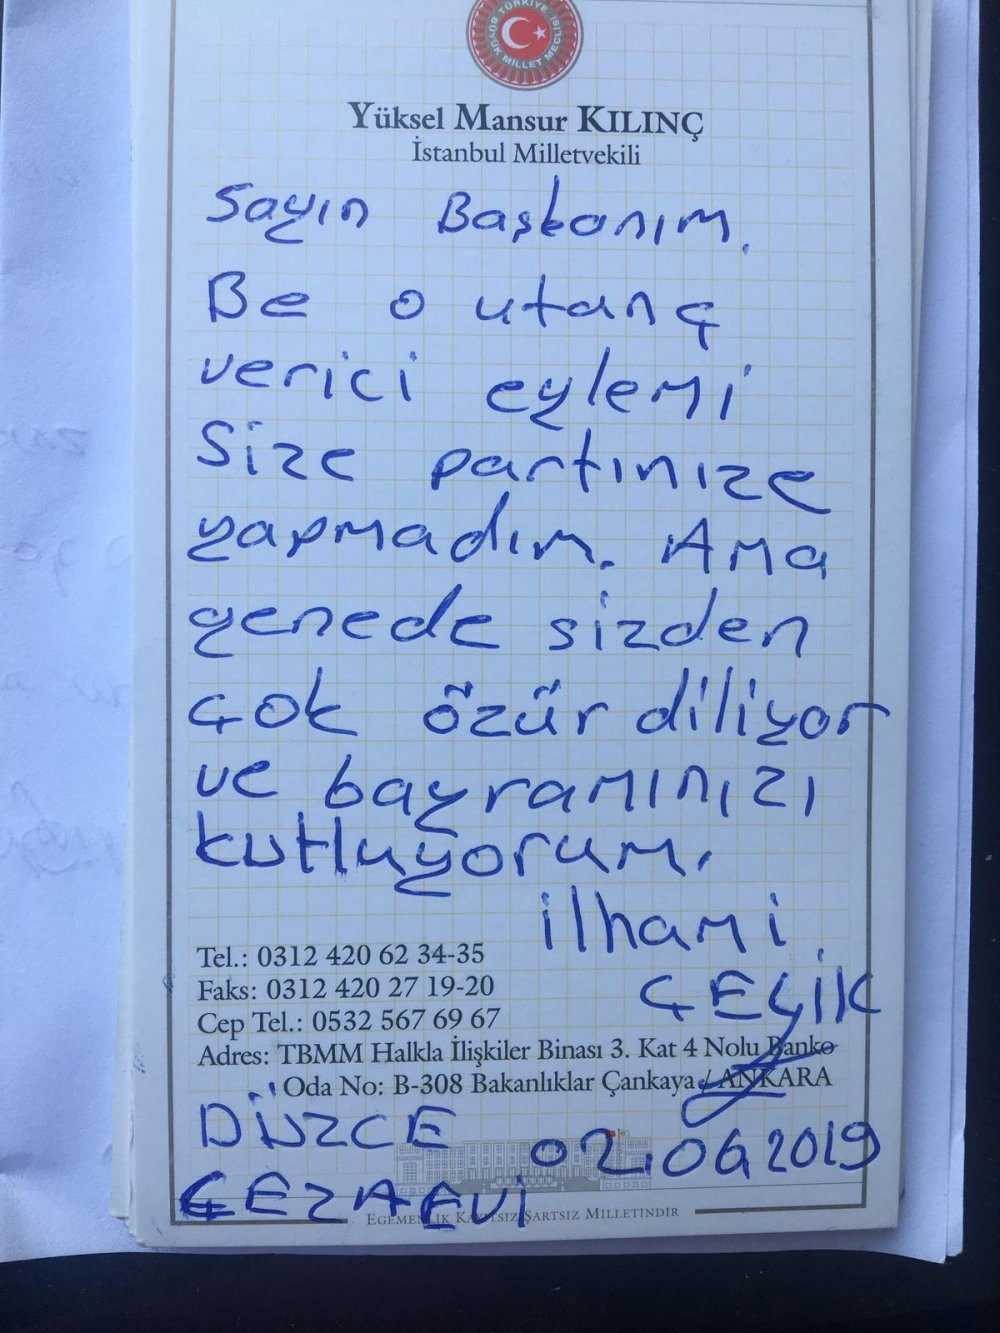 TÜRKİYE BÜYÜK MİLLET MECLİSİ
Yüksel Mansur KILINÇ
İstanbul Milletvekili
Sayın Başkanım.
Be o utanç
verici eylemi
Size partinize
yapmadım. Ama
genede sizden
çok özür diliyor
ve bayramınızı
kutluyorum.
ilhami
ÇEÇİK
Tel.: 0312 420 62 34-35
Faks: 0312 420 27 19-20
Cep Tel.: 0532 567 69 67
Adres: TBMM Halkla İlişkiler Binası 3. Kat 4 Nolu Banko
Oda No: B-308 Bakanlıklar Çankaya / ANKARA
DÜZCE
02.06.2019
CEZAEVİ
EGEMENLİK KAYITSIZ ŞARTSIZ MİLLETİNDİR